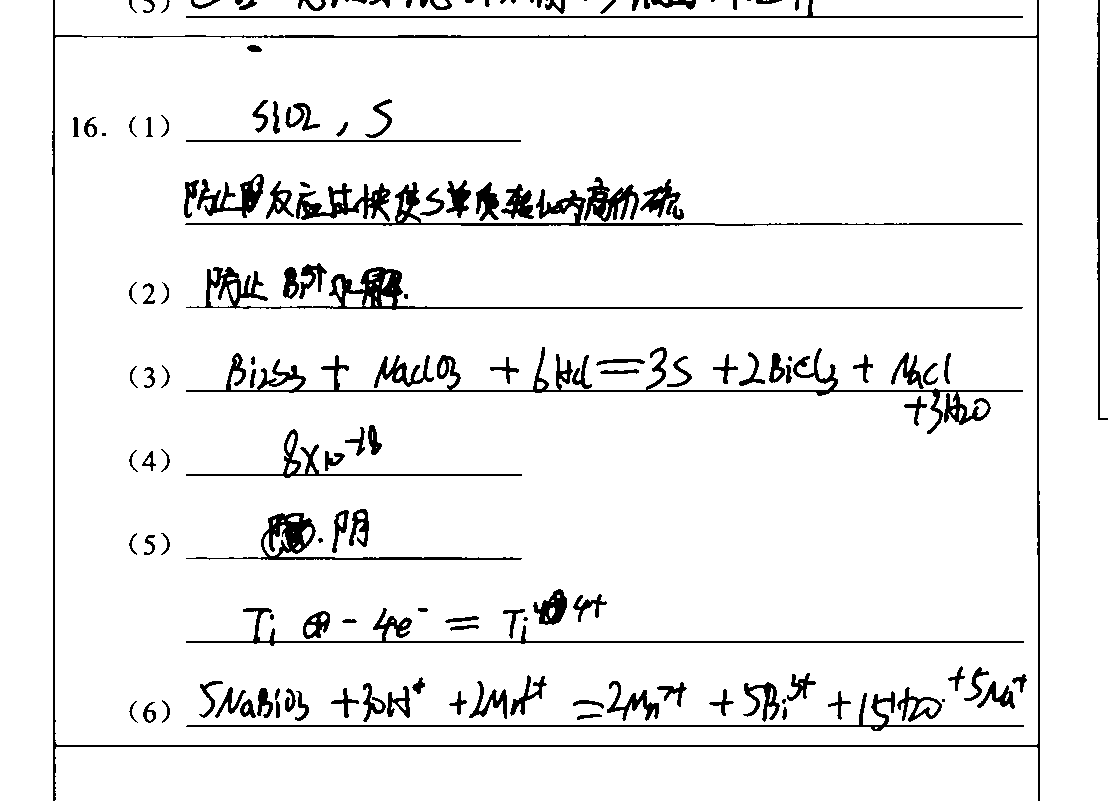 (5)
16. (1) SiO2 , S
防止 反应过快使S单质转化为高价硫
(2) 防止 Bi3+水解.
(3) Bi2S3 + NaClO3 + 6HCl = 3S + 2BiCl3 + NaCl
+3H2O
(4) 8×10-18
(5) 阴
Ti - 4e- = Ti 4+
(6) 5NaBiO3 + 30H+ + 2Mn2+ = 2Mn7+ + 5Bi3+ + 15H2O +5Na+